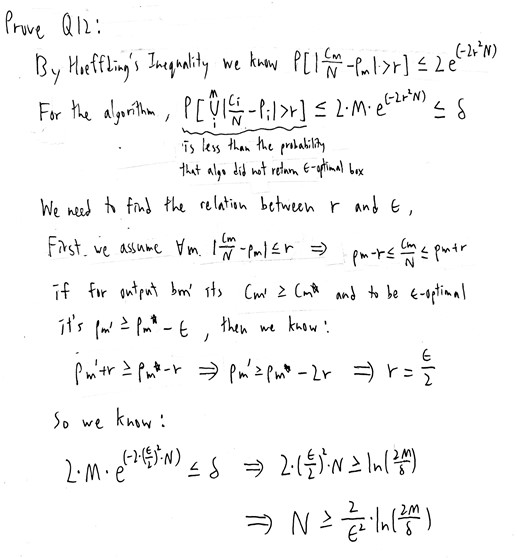 Prove Q12:
By Hoeffding's Inequality we know P[|Cm/N - Pm| > r] ≤ 2e^(-2r²N)
For the algorithm, P[⋃_i^M |Ci/N - Pi| > r] ≤ 2·M·e^(-2r²N) ≤ δ
is less than the probability
that algo did not return ε-optimal box
We need to find the relation between r and ε,
First, we assume ∀m. |Cm/N - Pm| ≤ r ⇒ Pm-r ≤ Cm/N ≤ Pm+r
if for output bm' its Cm' ≥ Cm* and to be ε-optimal
it's Pm' ≥ Pm* - ε, then we know:
Pm'+r ≥ Pm*-r ⇒ Pm' ≥ Pm* - 2r ⇒ r = ε/2
So we know:
2·M·e^(-2·(ε/2)²·N) ≤ δ ⇒ 2·(ε/2)²·N ≥ ln(2M/δ)
⇒ N ≥ 2/ε²·ln(2M/δ)